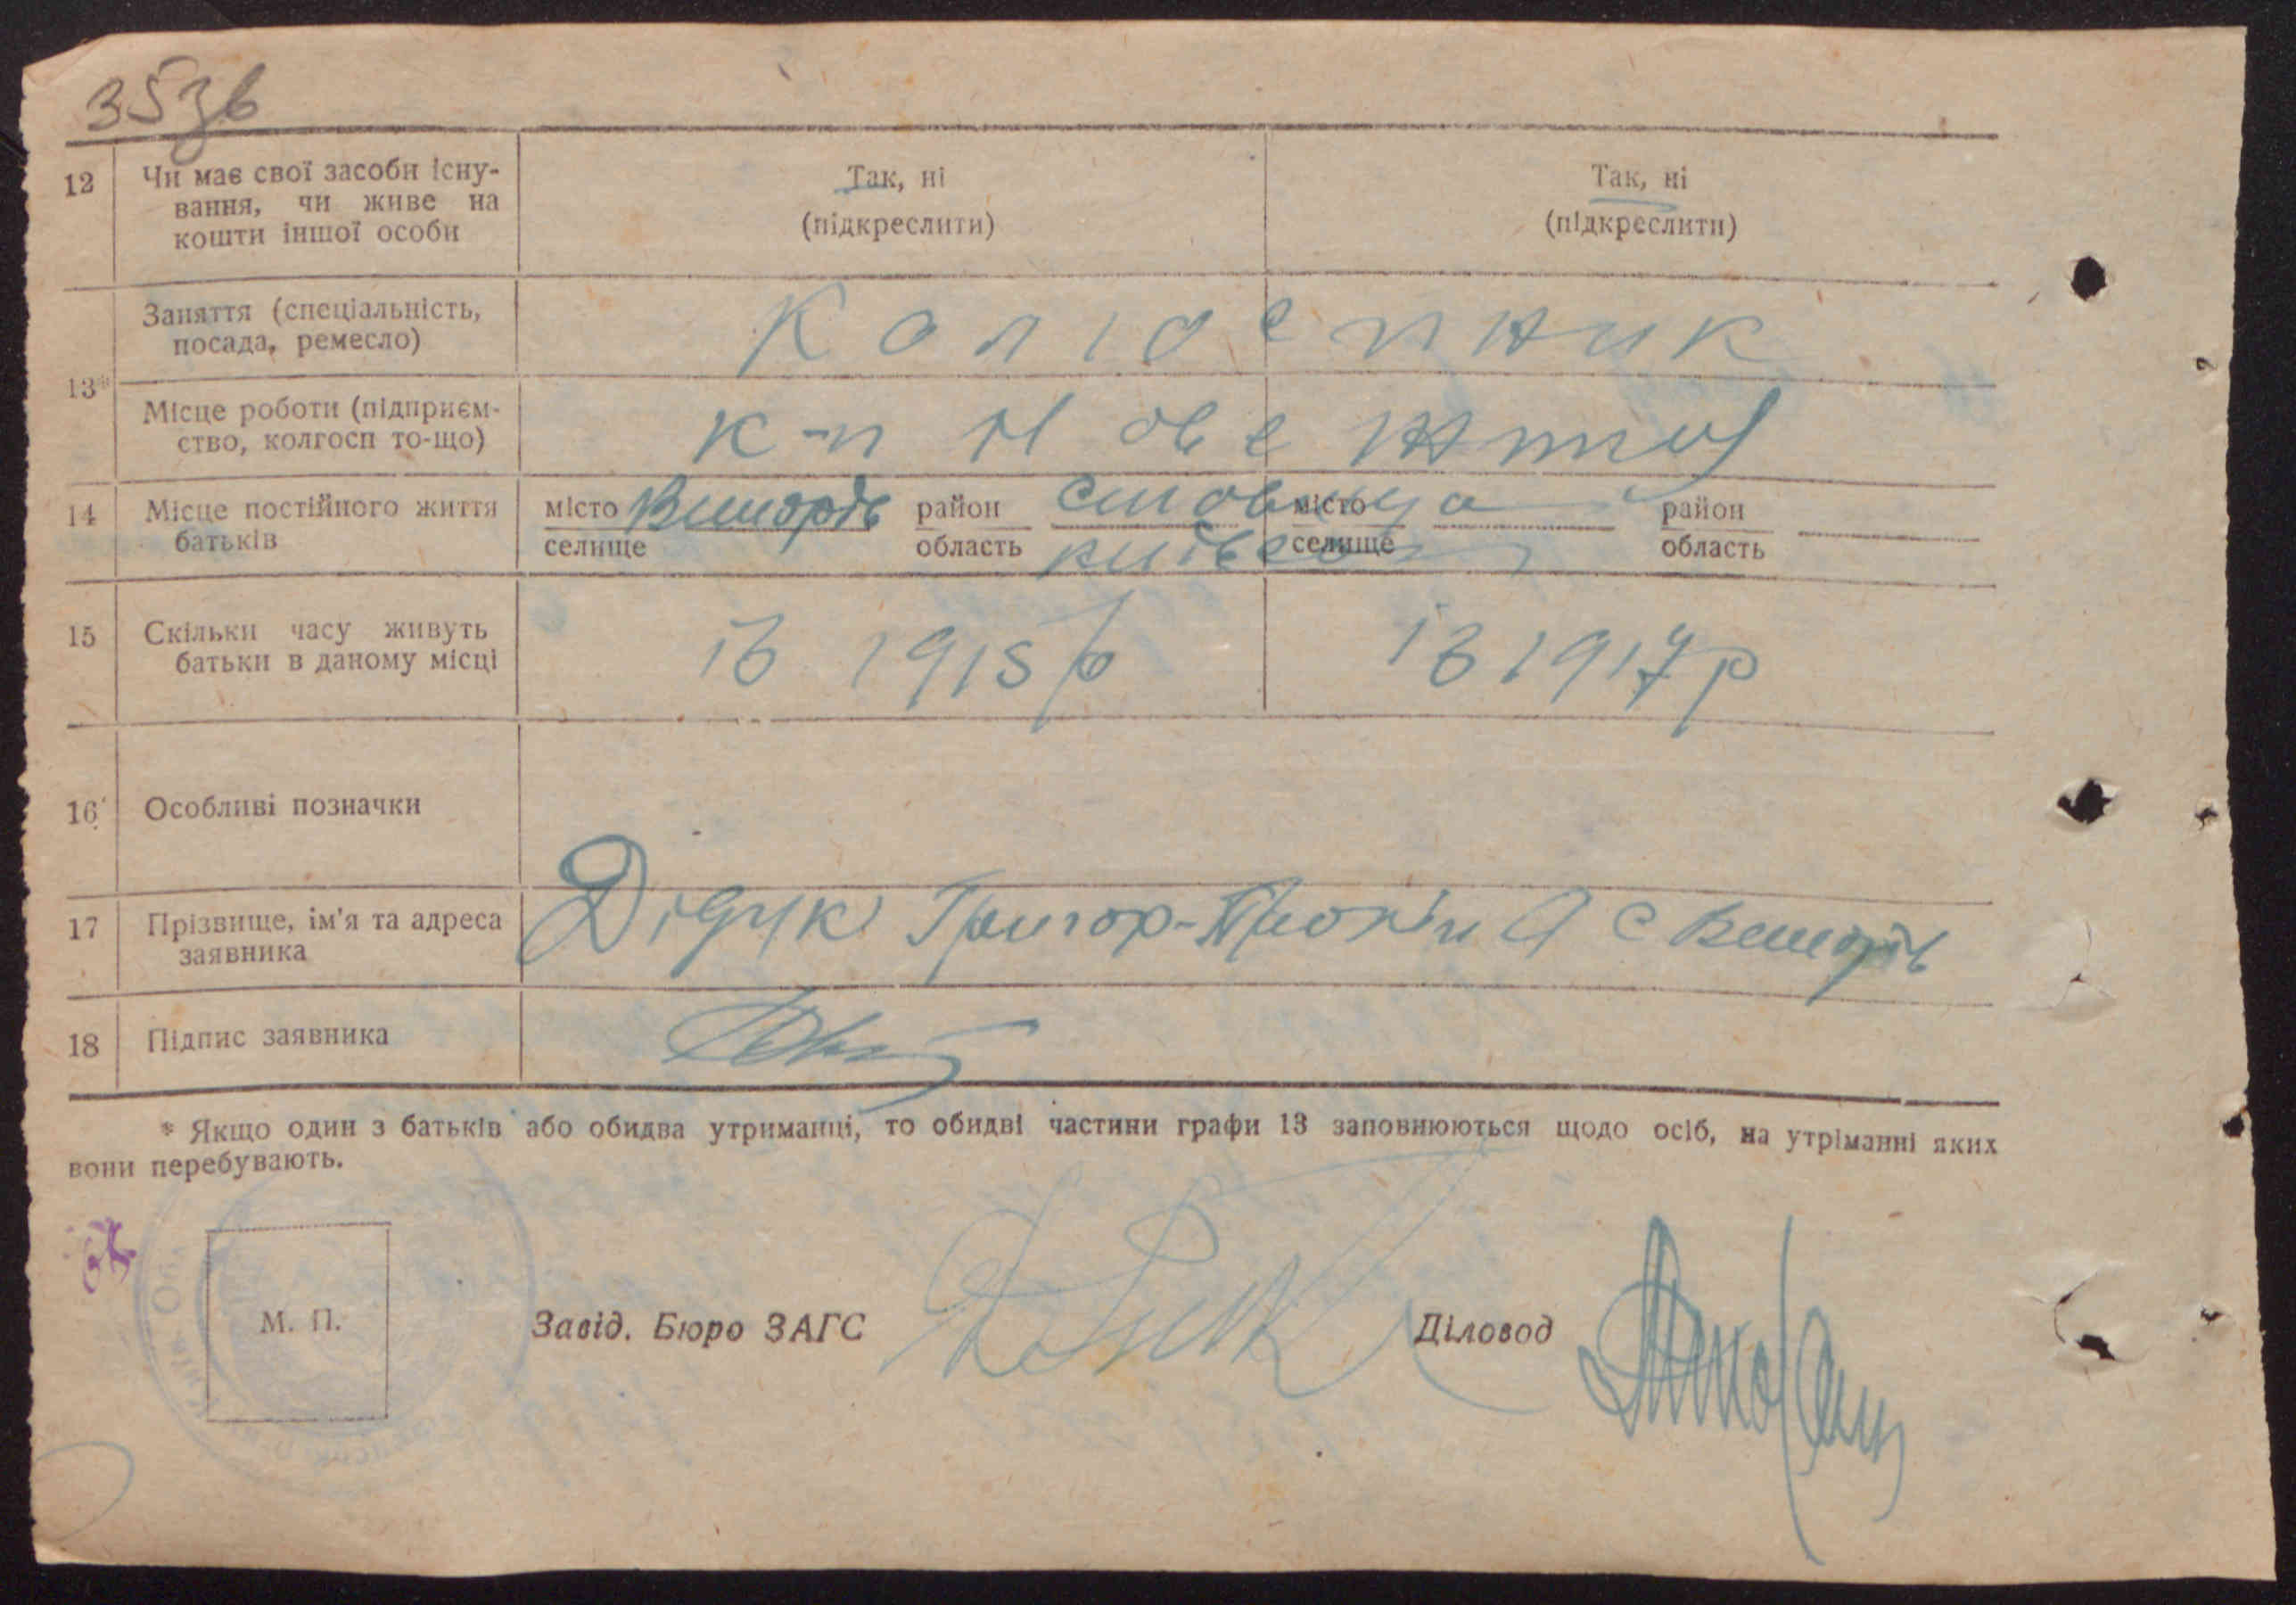 3536
12 Чи має свої засоби існу-
вання, чи живе на
кошти іншої особи
Так, ні
(підкреслити)
Так, ні
(підкреслити)
13*
Заняття (спеціальність,
посада, ремесло)
Місце роботи (підприєм-
ство, колгосп то-що)
к-п Нове життя
14 Місце постійного життя
батьків
місто
селище
Вишорів
район
область
Ставища
київська
місто
селище
район
область
15 Скільки часу живуть
батьки в даному місці
із 1915 р
із 1917 р
16 Особливі позначки
17 Прізвище, ім'я та адреса
заявника
Дідук Григор
с
18 Підпис заявника
* Якщо один з батьків або обидва утриманці, то обидві частини графи 13 заповнюються щодо осіб, на утріманні яких
вони перебувають.
М. П.
Завід. Бюро ЗАГС
Діловод